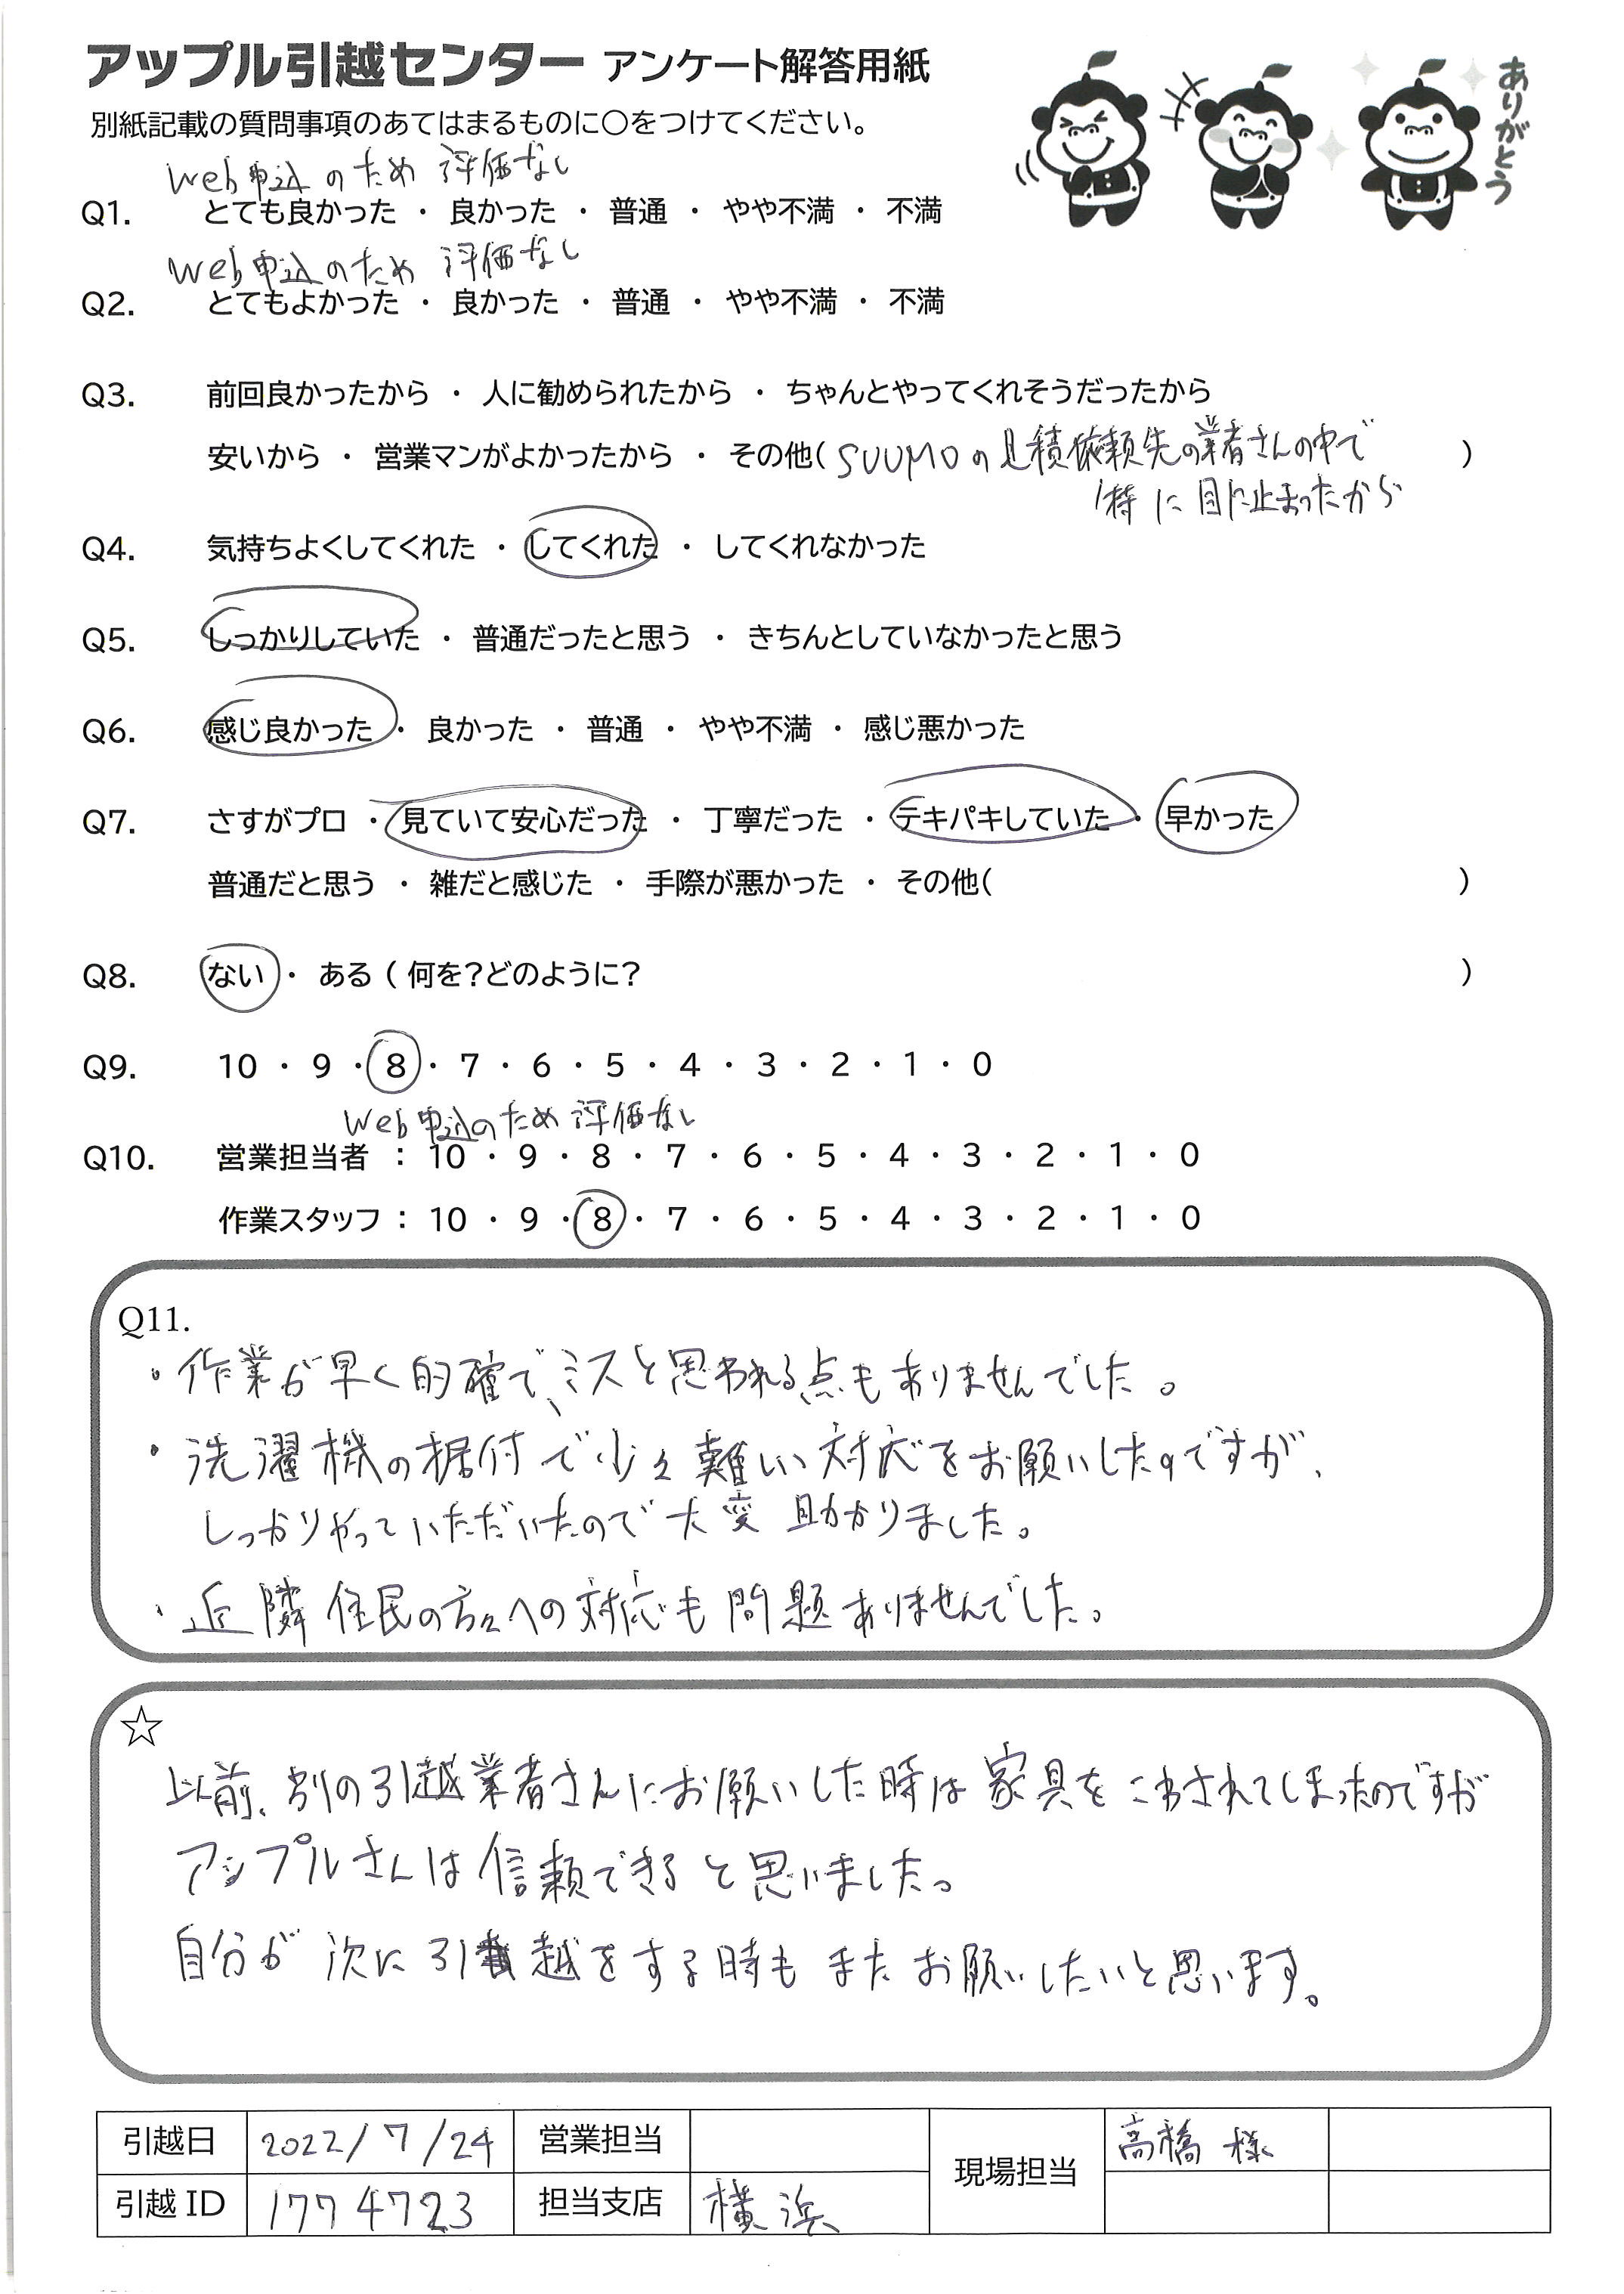 アップル引越センター アンケート解答用紙
ありがとう
別紙記載の質問事項のあてはまるものに○をつけてください。
Web申込のため 評価なし
Q1. とても良かった ・ 良かった ・ 普通 ・ やや不満 ・ 不満
Web申込のため 評価なし
Q2. とてもよかった ・ 良かった ・ 普通 ・ やや不満 ・ 不満
Q3. 前回良かったから ・ 人に勧められたから ・ ちゃんとやってくれそうだったから
安いから ・ 営業マンがよかったから ・ その他( SUUMOの見積依頼先の業者さんの中で )
特に目に止まったから
Q4. 気持ちよくしてくれた ・ してくれた ・ してくれなかった
Q5. しっかりしていた ・ 普通だったと思う ・ きちんとしていなかったと思う
Q6. 感じ良かった ・ 良かった ・ 普通 ・ やや不満 ・ 感じ悪かった
Q7. さすがプロ ・ 見ていて安心だった ・ 丁寧だった ・ テキパキしていた ・ 早かった
普通だと思う ・ 雑だと感じた ・ 手際が悪かった ・ その他( )
Q8. ない ・ ある ( 何を?どのように? )
Q9. 10 ・ 9 ・ 8 ・ 7 ・ 6 ・ 5 ・ 4 ・ 3 ・ 2 ・ 1 ・ 0
Web申込のため 評価なし
Q10. 営業担当者 : 10 ・ 9 ・ 8 ・ 7 ・ 6 ・ 5 ・ 4 ・ 3 ・ 2 ・ 1 ・ 0
作業スタッフ : 10 ・ 9 ・ 8 ・ 7 ・ 6 ・ 5 ・ 4 ・ 3 ・ 2 ・ 1 ・ 0
Q11.
・作業が早く的確で、ミスと思われる点もありませんでした。
・洗濯機の据付で少々難しい対応をお願いしたのですが、
しっかりやっていただいたので大変助かりました。
・近隣住民の方々への対応も問題ありませんでした。
☆
以前、別の引越業者さんにお願いした時は家具をこわされてしまったのですが
アップルさんは信頼できると思いました。
自分が次に引越をする時もまたお願いしたいと思います。
引越日 2022/7/24 営業担当 現場担当 高橋様
引越ID 1774723 担当支店 横浜